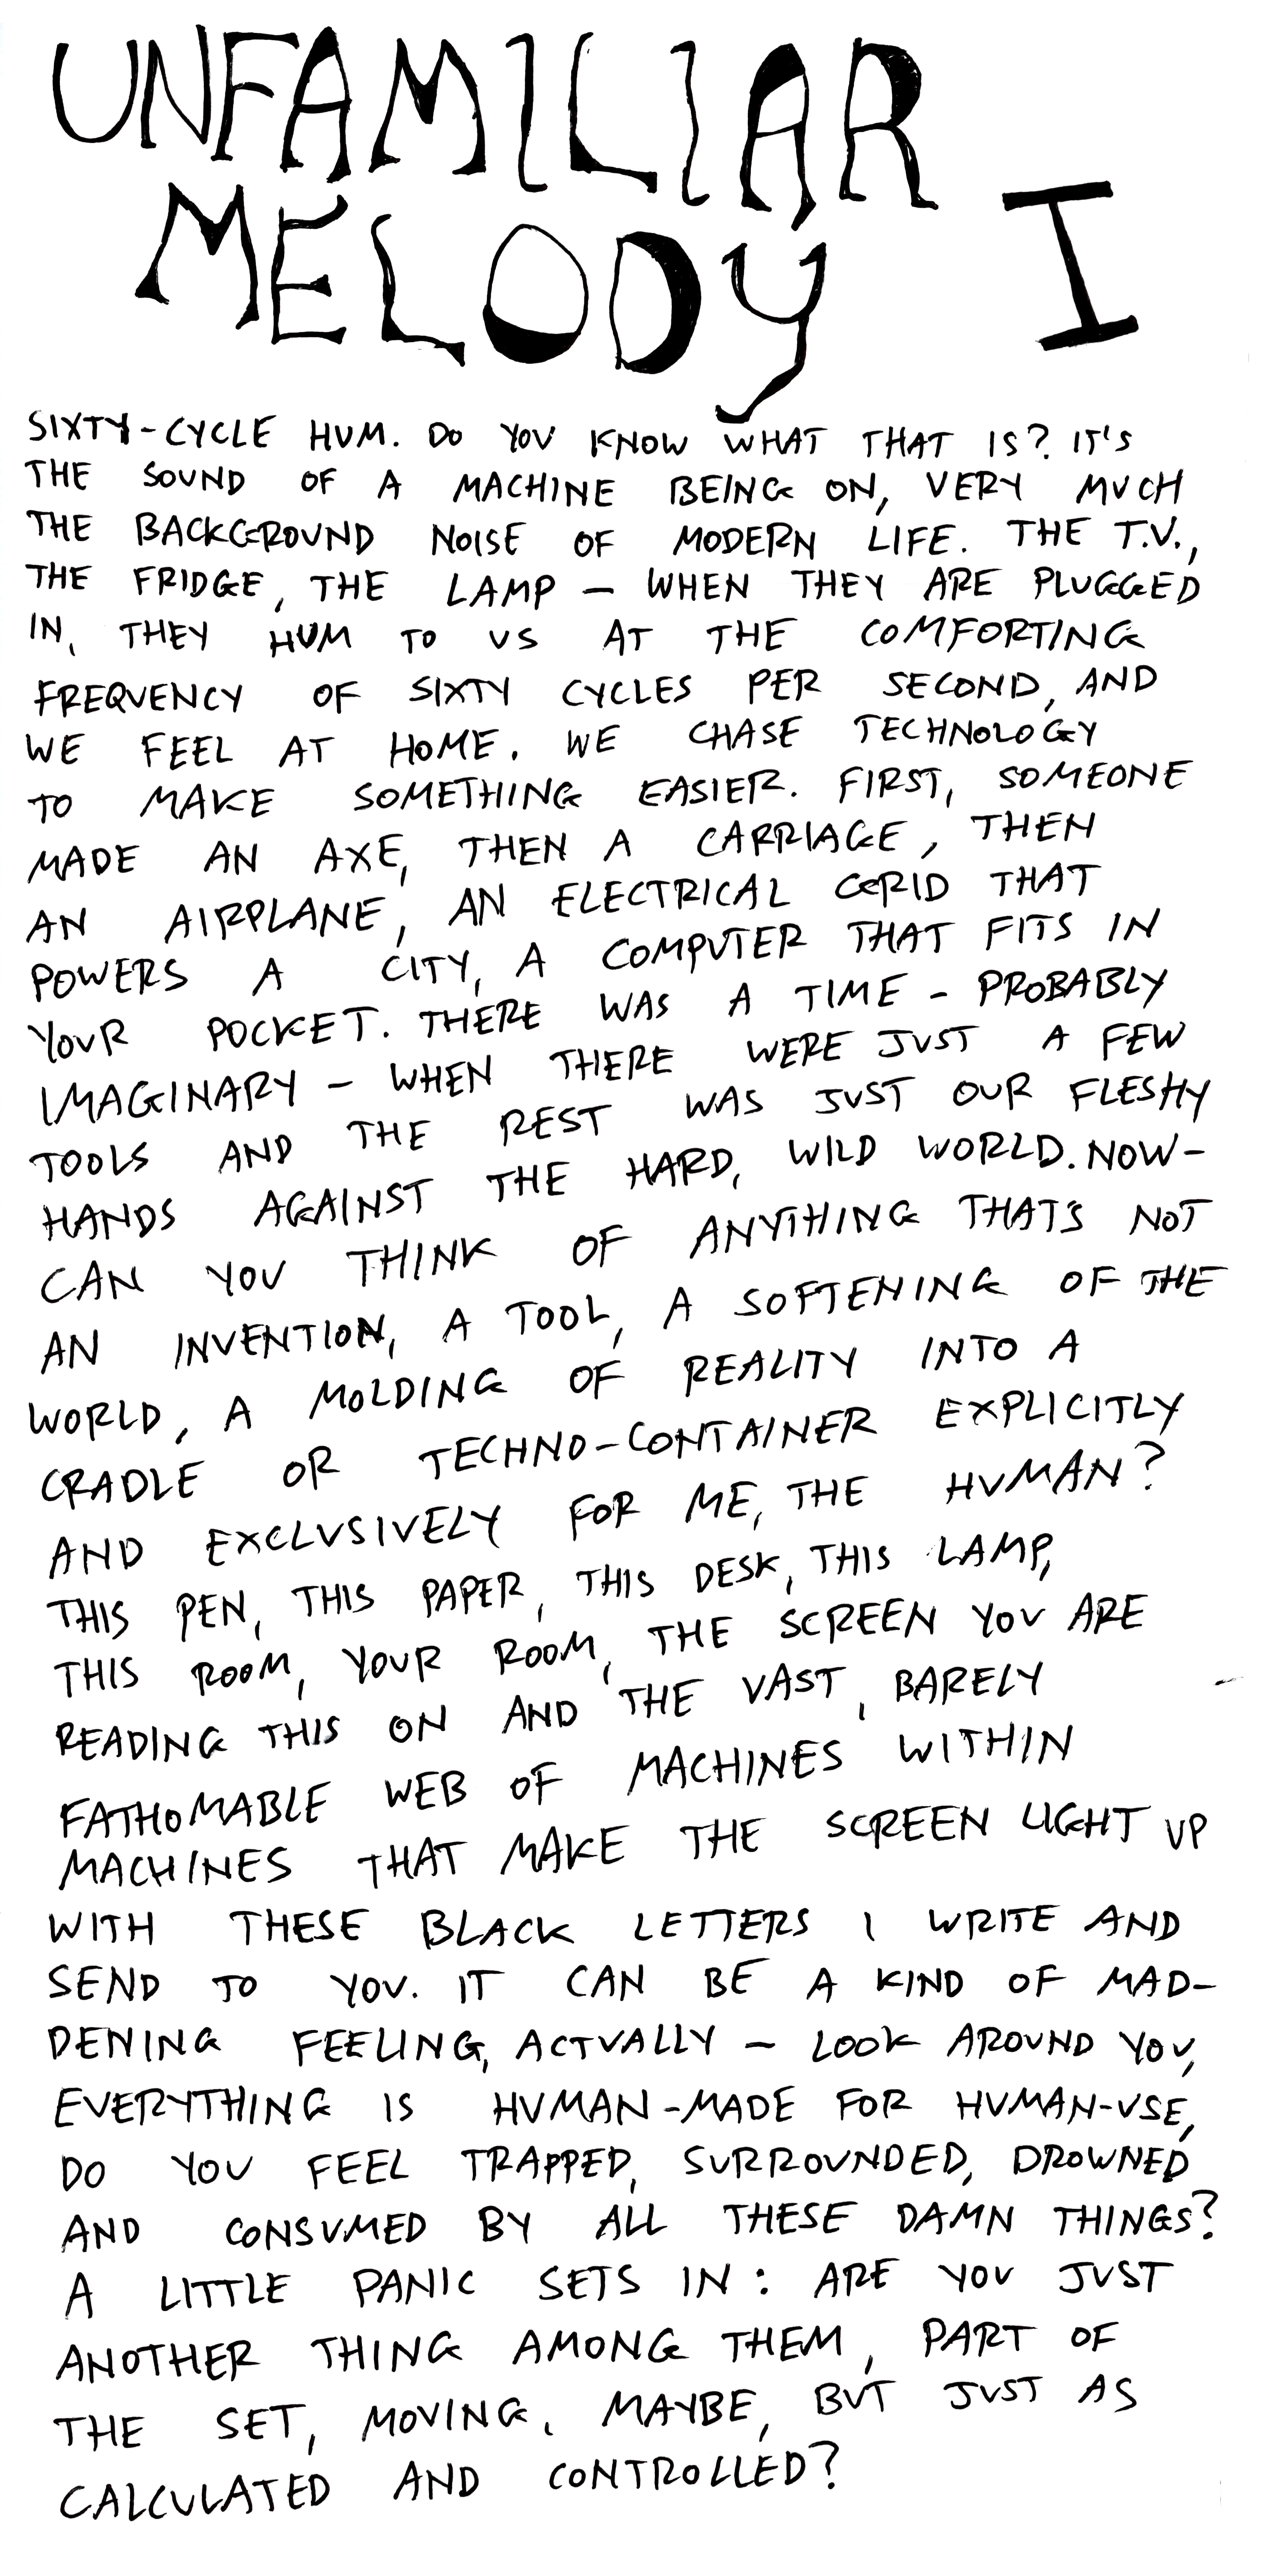 UNFAMILIAR
MELODY I
SIXTY-CYCLE HUM. DO YOU KNOW WHAT THAT IS? IT'S
THE SOUND OF A MACHINE BEING ON, VERY MUCH
THE BACKGROUND NOISE OF MODERN LIFE. THE T.V.,
THE FRIDGE, THE LAMP — WHEN THEY ARE PLUGGED
IN, THEY HUM TO US AT THE COMFORTING
FREQUENCY OF SIXTY CYCLES PER SECOND, AND
WE FEEL AT HOME. WE CHASE TECHNOLOGY
TO MAKE SOMETHING EASIER. FIRST, SOMEONE
MADE AN AXE, THEN A CARRIAGE, THEN
AN AIRPLANE, AN ELECTRICAL GRID THAT
POWERS A CITY, A COMPUTER THAT FITS IN
YOUR POCKET. THERE WAS A TIME - PROBABLY
IMAGINARY - WHEN THERE WERE JUST A FEW
TOOLS AND THE REST WAS JUST OUR FLESHY
HANDS AGAINST THE HARD, WILD WORLD. NOW-
CAN YOU THINK OF ANYTHING THAT'S NOT
AN INVENTION, A TOOL, A SOFTENING OF THE
WORLD, A MOLDING OF REALITY INTO A
CRADLE OR TECHNO-CONTAINER EXPLICITLY
AND EXCLUSIVELY FOR ME, THE HUMAN?
THIS PEN, THIS PAPER, THIS DESK, THIS LAMP,
THIS ROOM, YOUR ROOM, THE SCREEN YOU ARE
READING THIS ON AND THE VAST, BARELY
FATHOMABLE WEB OF MACHINES WITHIN
MACHINES THAT MAKE THE SCREEN LIGHT UP
WITH THESE BLACK LETTERS I WRITE AND
SEND TO YOU. IT CAN BE A KIND OF MAD-
DENING FEELING, ACTUALLY — LOOK AROUND YOU,
EVERYTHING IS HUMAN-MADE FOR HUMAN-USE,
DO YOU FEEL TRAPPED, SURROUNDED, DROWNED
AND CONSUMED BY ALL THESE DAMN THINGS?
A LITTLE PANIC SETS IN: ARE YOU JUST
ANOTHER THING AMONG THEM, PART OF
THE SET, MOVING, MAYBE, BUT JUST AS
CALCULATED AND CONTROLLED?